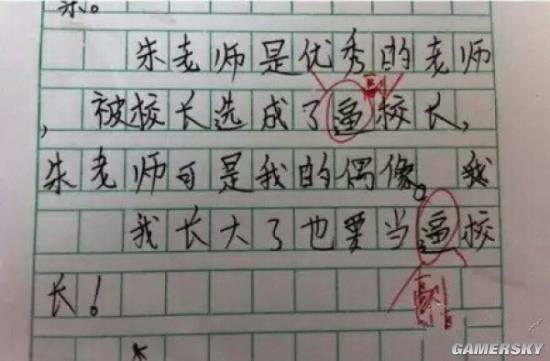 朱老师是优秀的老师
副
，被校长选成了逼校长，
朱老师可是我的偶像。我
我长大了也要当逼校
副
长！
GAMERSKY